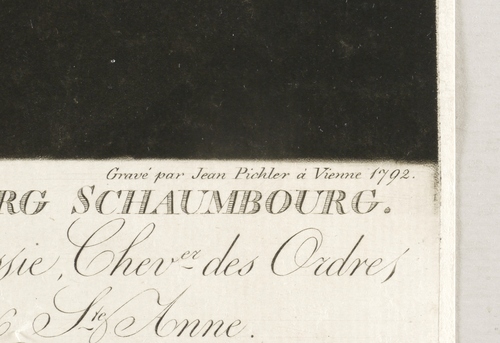 Gravé par Jean Pichler à Vienne 1792.
RG SCHAUMBOURG.
ssie, Chev.er des Ordres
& Ste Anne.